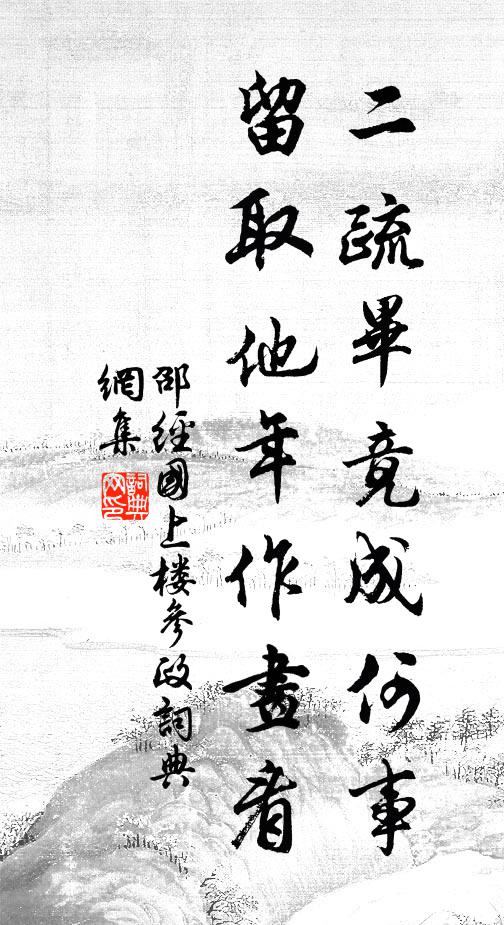 二疏畢竟成何事
留取他年作畫看
邵經國上楼參政詞典
網集
詞典
网印